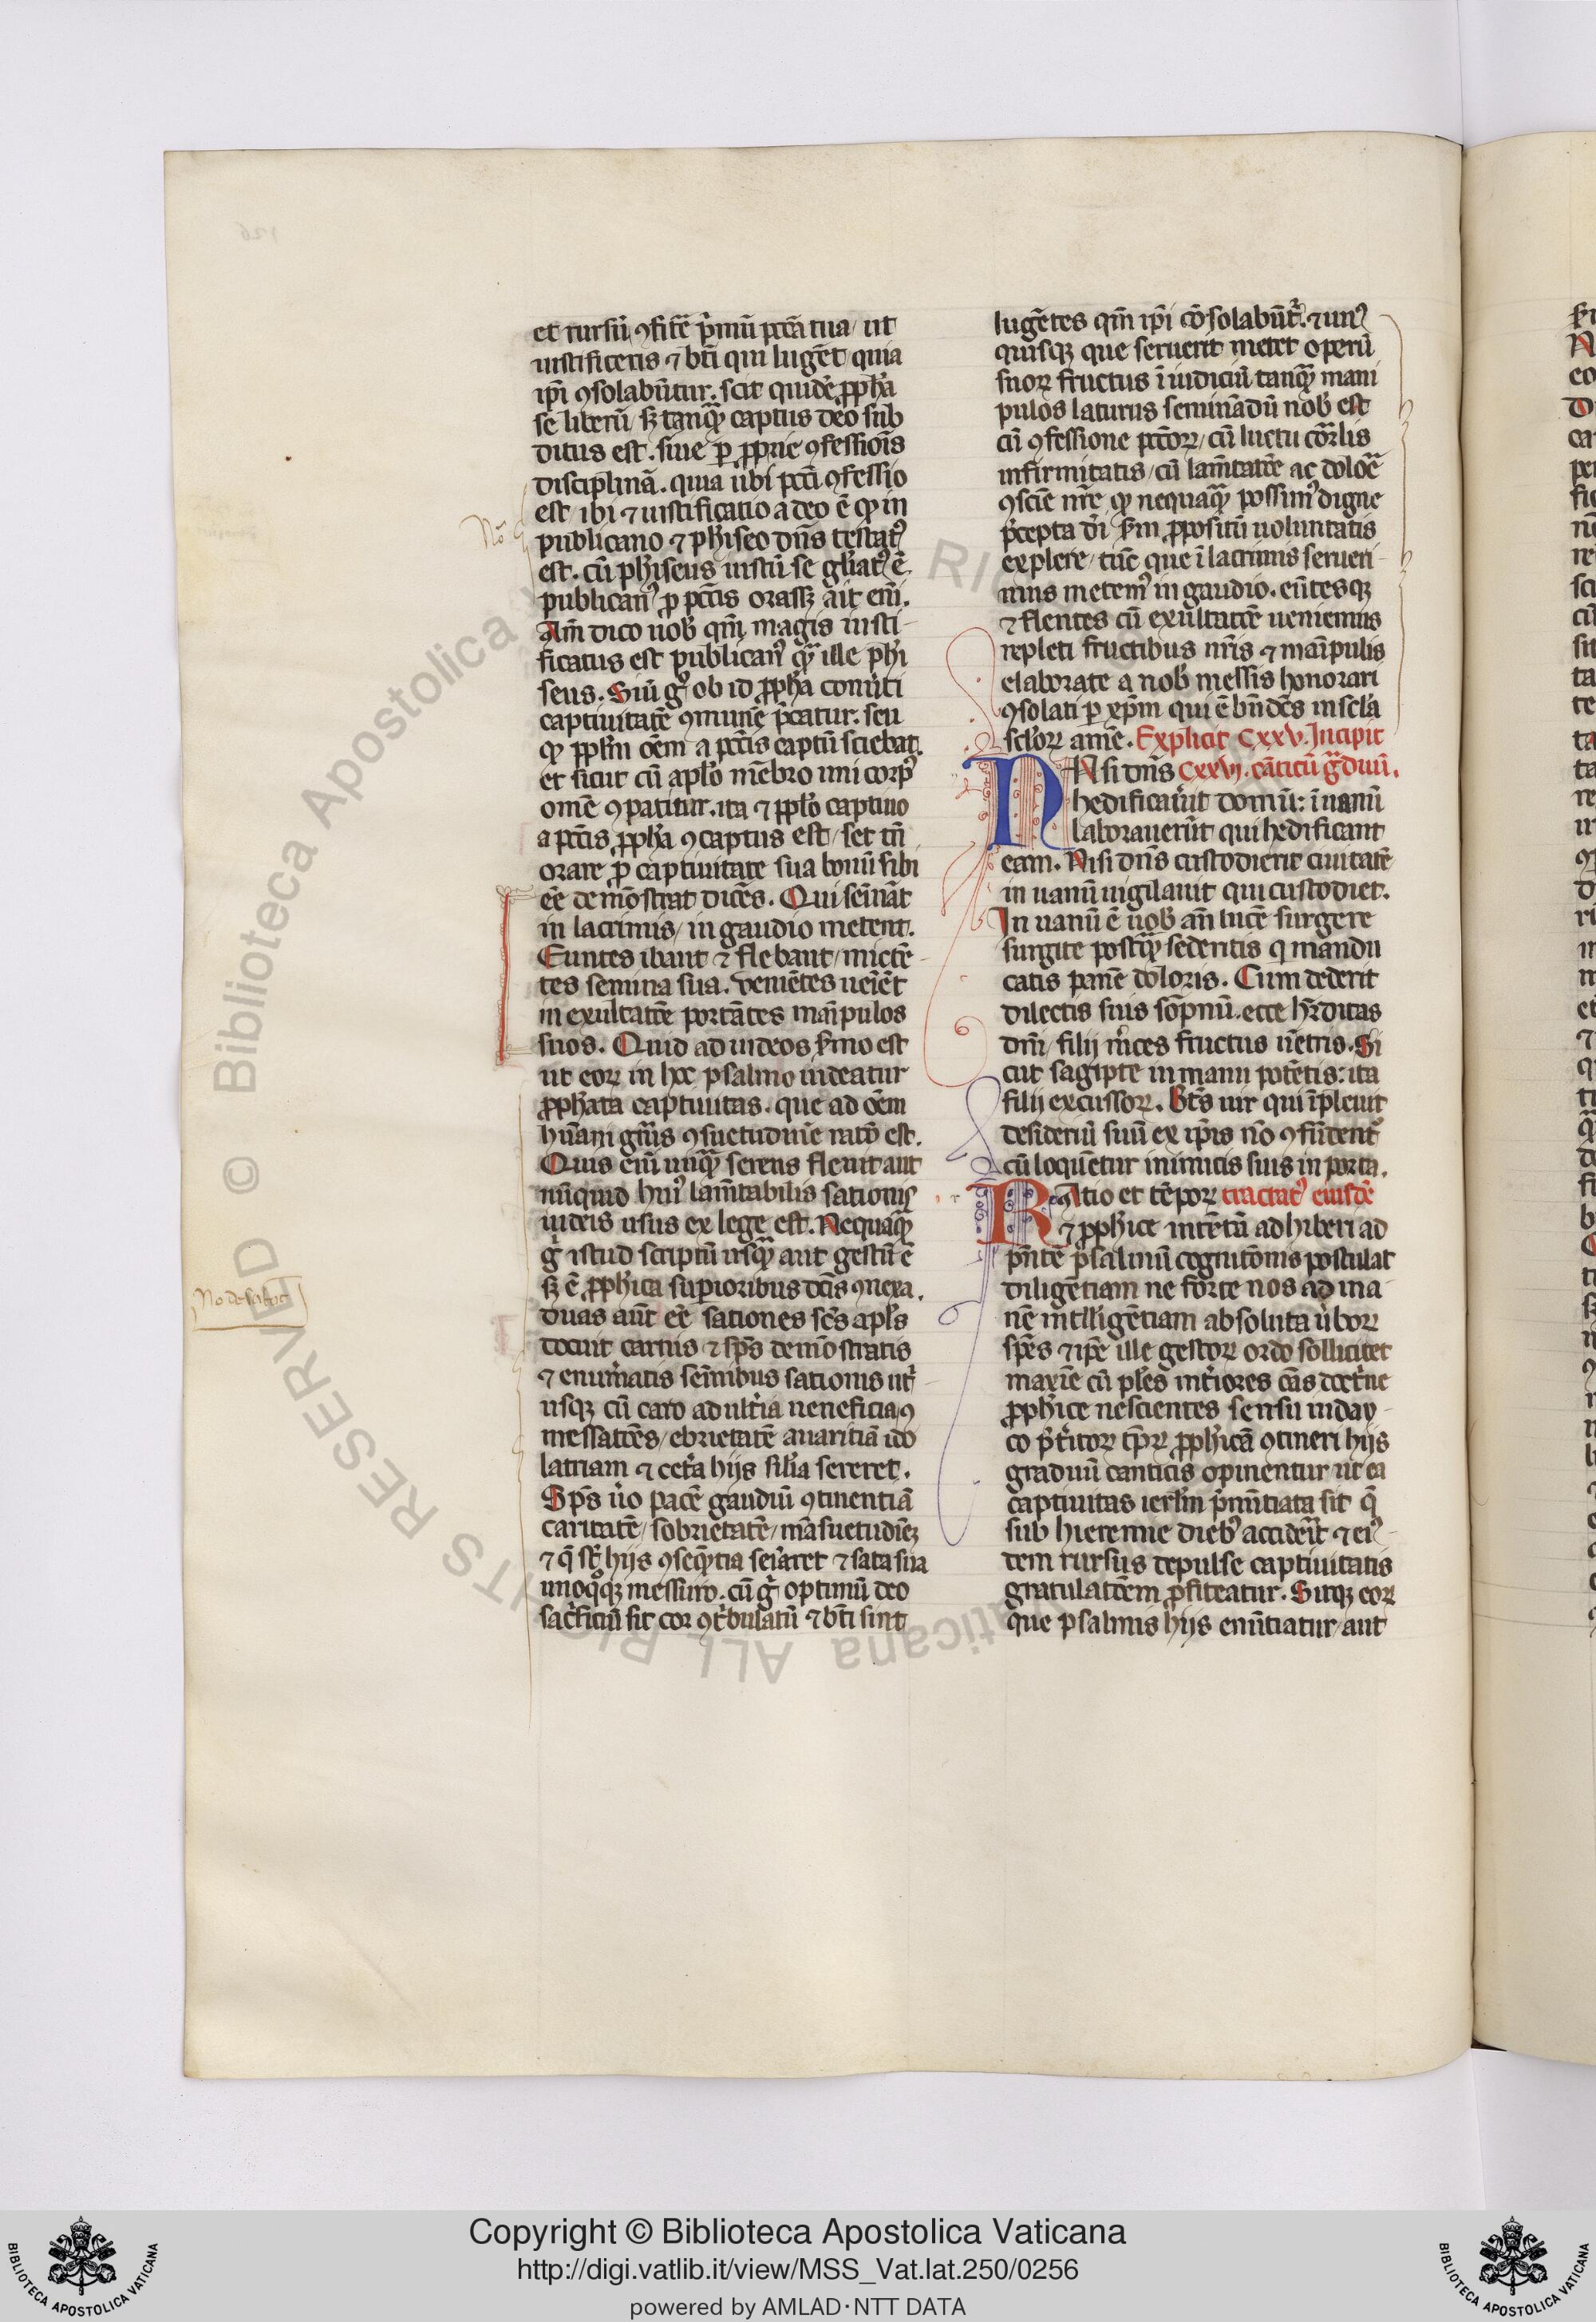 et rursū ꝯfitē p̄mū pctā tua / ut
iustificeris ⁊ bti qui lugēt quia
ip̄i ꝯsolabūtur . scit quidē ꝓpha
se liberū / sꝫ tanꝙ captus deo sub
ditus est . siue ꝑ ꝓprie ꝯfessiois
disciplinā . quia ubi pcti ꝯfessio
est / ibi ⁊ iustificatio a deo ē ꝙ in
publicano ⁊ phiseo dn̄s testatꝰ
est . cū phiseus iustū se gl̄iatꝰ ē
publicanꝰ ꝓ pctis orassꝫ ait eni .
Am̄ dico uob̄ qm̄ magis iusti
ficatus est publicanꝰ ꝙ ille phi
seus . Siū g° ob id ꝓpha conūti
captiuitatē ꝯmunē p̄catur . seu
ꝙ pplm̄ oēm a pctis captū sciebat .
et sicut cū apl̄o mēbro uni corpꝰ
omē ꝯpatitur . ita ⁊ ppl̄o captiuo
a pctis ꝓpha ꝯcaptus est / set tn̄
orare ꝓ captiuitate sua bonū sibi
eē demōstrat dicēs . Qui semināt
in lacrimis / in gaudio metent .
Euntes ibant ⁊ flebant / mictē
tes semina sua . veniētes ueīēt
in exultatōe portātes man̄ipulos
suos . Quid ad iudeos s̄mo est
ut eoꝝ in hoc psalmo uideatur
ꝓphata captiuitas . que ad oēm
hūani gn̄is ꝯsuetudinē ratō est .
Quis eni unꝙ serens fleuit aut
nūquid huiꝰ lam̄tabilis sationis
iudeis usus ex lege est . Nequaꝙ
g° istud scriptū usꝙ aut gestū ē
sꝫ ē ꝓphica supioribus dc̄is ꝯnexa .
duas aut̄ eē sationes scs apl̄s
docuit carnis ⁊ sp̄s demōstratis
⁊ enum̄atis seminibus sationis utr̄
usqꝫ cū caro adult̄ia ueneficia / ꝯ
messatōes / ebrietatē auaritiā ido
latriam ⁊ cet̄a hijs sil̄ia sereret .
Sp̄s ū°o pacē gaudiū ꝯtinentiā
caritatē / sobrietatē / māsuetudinēꝫ
⁊ q̄ st̄ hijs ꝯseqntia sem̄aret ⁊ sata sua
unoqꝫqꝫ messuro . cū g° optimū deo
sac̄ficiū sit cor ꝯt̄bulatū ⁊ bt̄i sint
lugētes qm̄ ip̄i cōsolabūt̄ . ⁊ unꝰ
quisqꝫ que seruerit metet operū
suoꝝ fructus ī iudiciū tanꝙ mani
pulos laturus seminādū nob̄ est
cū ꝯfessione pctōꝝ / cū luctu cōr̄lis
infirmitatis / cū lam̄tatōe ac doloē
ꝯsciē nr̄e ꝙ nequaꝙ possimꝰ digne
p̄cepta di s̄m ꝓpositū uoluntatis
explere / tūc que ī lacrimis serueri
mus metemꝰ in gaudio . eūtesqꝫ
⁊ flentes cū exultatōe ueniemus
repleti fructibus nr̄is ⁊ man̄ipulis
elaborate a nob̄ messis honorari
ꝯsolati ꝑ xp̄m qui ē bn̄dc̄s in scl̄a
scl̄oꝝ amē . Explicit Cxxv . Incipit
NIsi dn̄s Cxxvj . cāticū g̃duū .
hedificau̅it domū : ī uanū
laborauerūt qui hedificant
eam . Nisi dn̄s custodierit ciuitatē
in uanū uigilauit qui custodiet .
In uanū ē uob̄ an̄ lucē surgere
surgite postꝙ sedentis q̄ mandu
catis panē doloris . Cum dederit
dilectis suis sōpnū . ecce hr̄ditas
dn̄i / filij m̄ces fructus uētris . Si
cut sagipte in manu potētis : ita
filij excussoꝝ . Bt̄s uir qui īpleuit
desideriū suū ex ip̄is nō ꝯfūdentꝰ
cū loquētur inimicis suis in porta .
RAtio et tēpoꝝ tractatꝰ eiusdē
⁊ ꝓphice intētū adhiberi ad
pn̄tē psalmū cognitōnis postulat
diligētiam ne forte nos ad ina
nē intlligētiam absoluta ūboꝝ
spēs ⁊ ip̄e ille gestoꝝ ordo sollicitet
maxīe cū pl̄es int̄iores cās doct̄ne
ꝓphice nescientes sensu iuday
co p̄t̄itoꝝ tp̄ꝝ ꝓphicā ꝯtineri hijs
graduū canticis opinentur / ut ea
captiuitas ierl̄m p̄nūtiata sit q̄
sub hieremie diebꝰ accidēit ⁊ eiꝰ
dem rursus depulse captiuitatis
gratulatōem ꝓfiteatur . Sitqꝫ eoꝝ
que psalmis hijs enūtiatur / aut
Nō
Copyright © Biblioteca Apostolica Vaticana
http://digi.vatlib.it/view/MSS_Vat.lat.250/0256
powered by AMLAD·NTT DATA